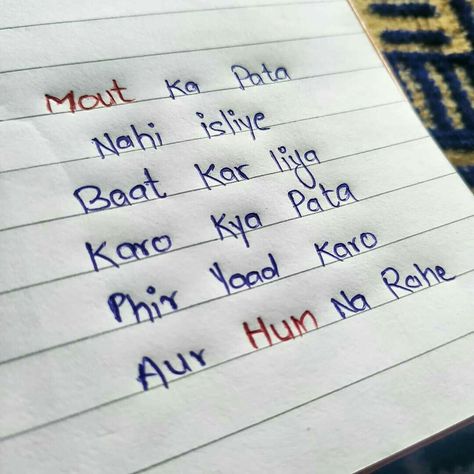 Mout Ka Pata
Nahi isliye
Baat Kar liya
Karo Kya Pata
Phir Yaad Karo
Aur Hum Na Rahe